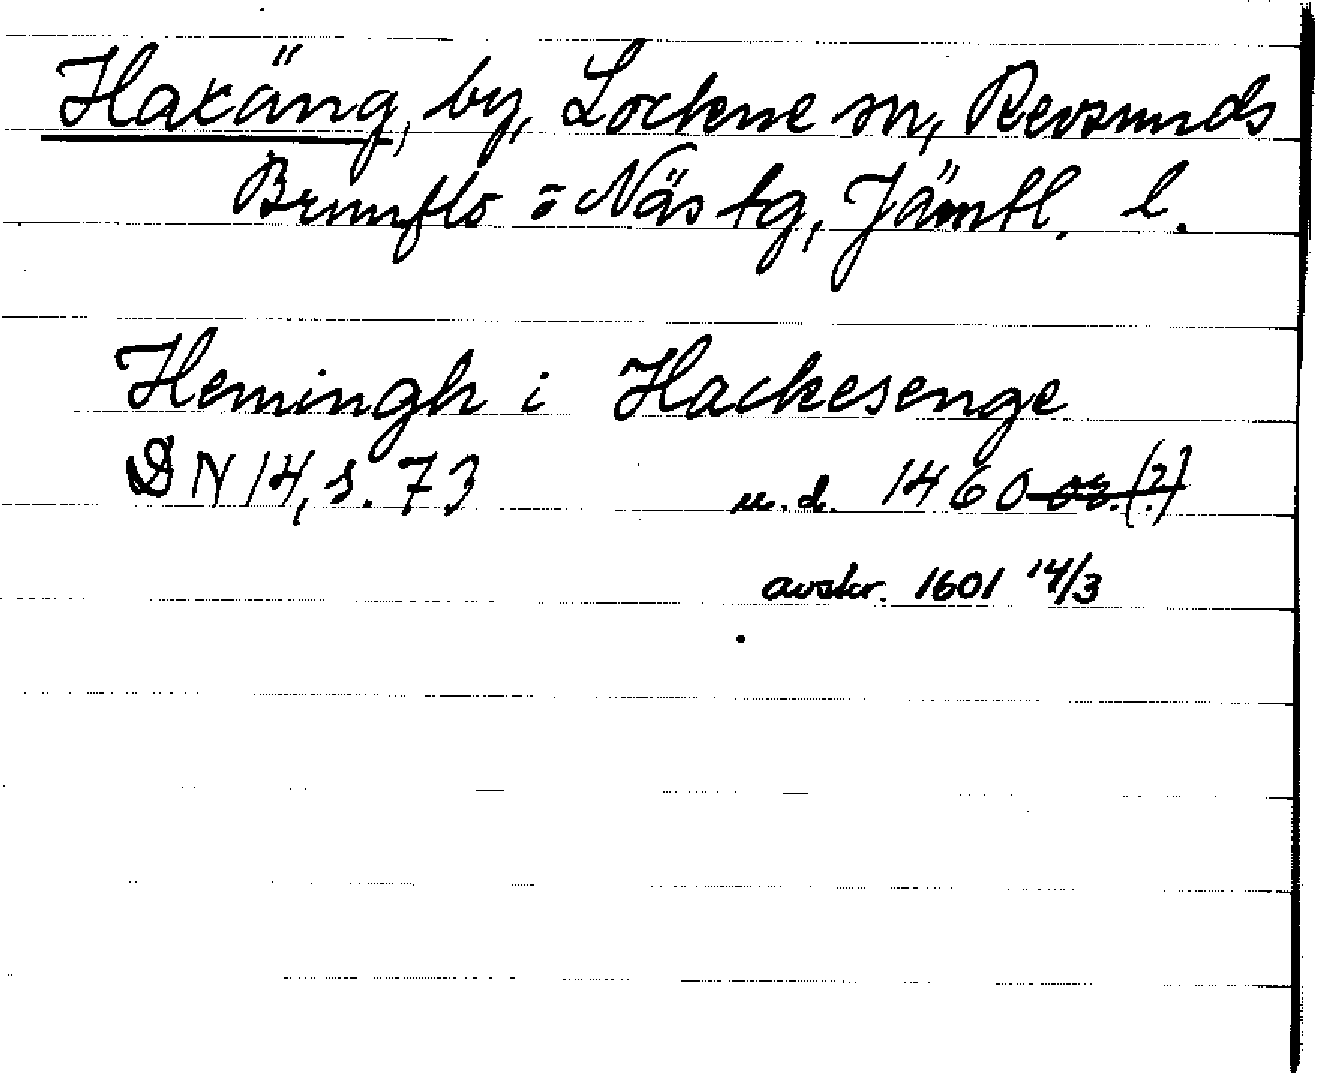 Haxäng, by, Lockne sn, Revsunds
Brunflo o Näs tg, Jämtl. l.
Hemingh i Hackesenge
DN 14, s. 73 u.d. 1460 or. (?)
avskr. 1601 14/3